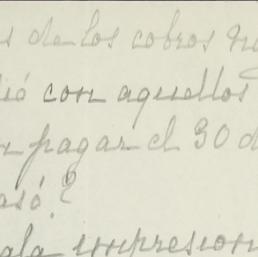 s de los cobros
ió con aquellos
pagar el 30 d
asó?
mala impresion